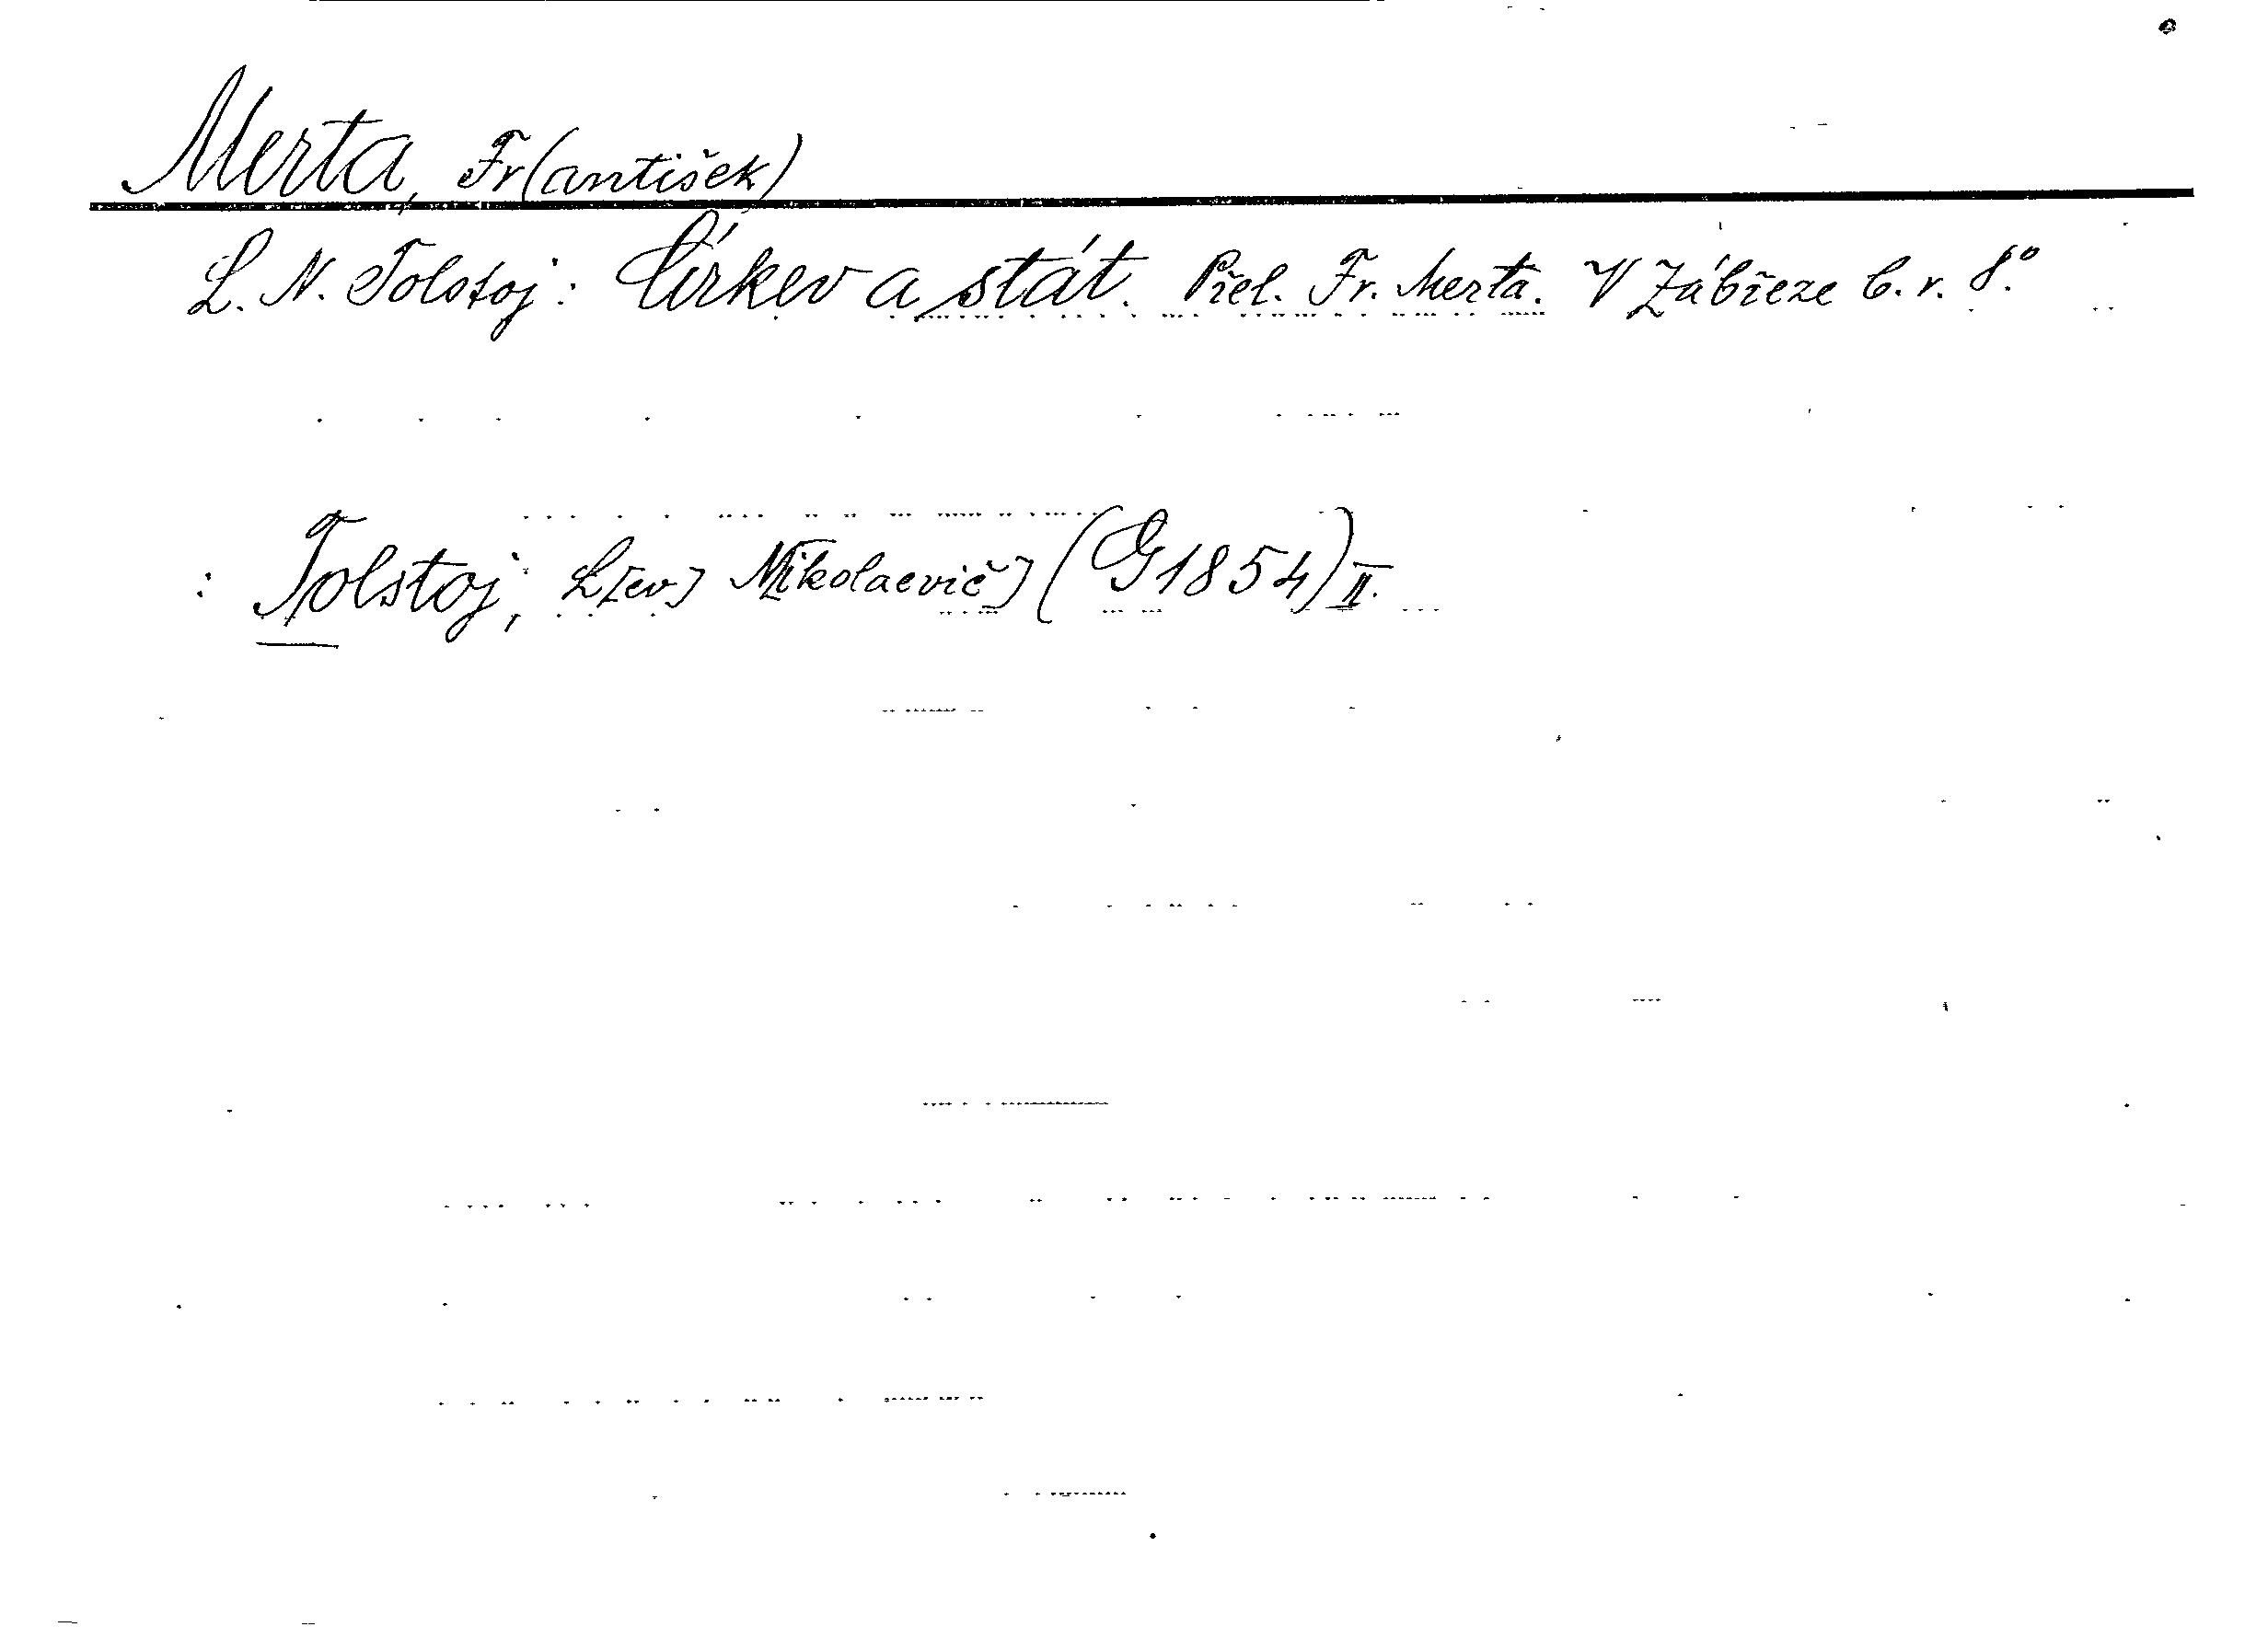 Merta, Fr(antišek)
L. N. Tolstoj: Církev a stát. Přel. Fr. Merta. V Zábřeze b. r. 8°.
: Tolstoj, L[ev] Nikolaevič] (G 1854) II.